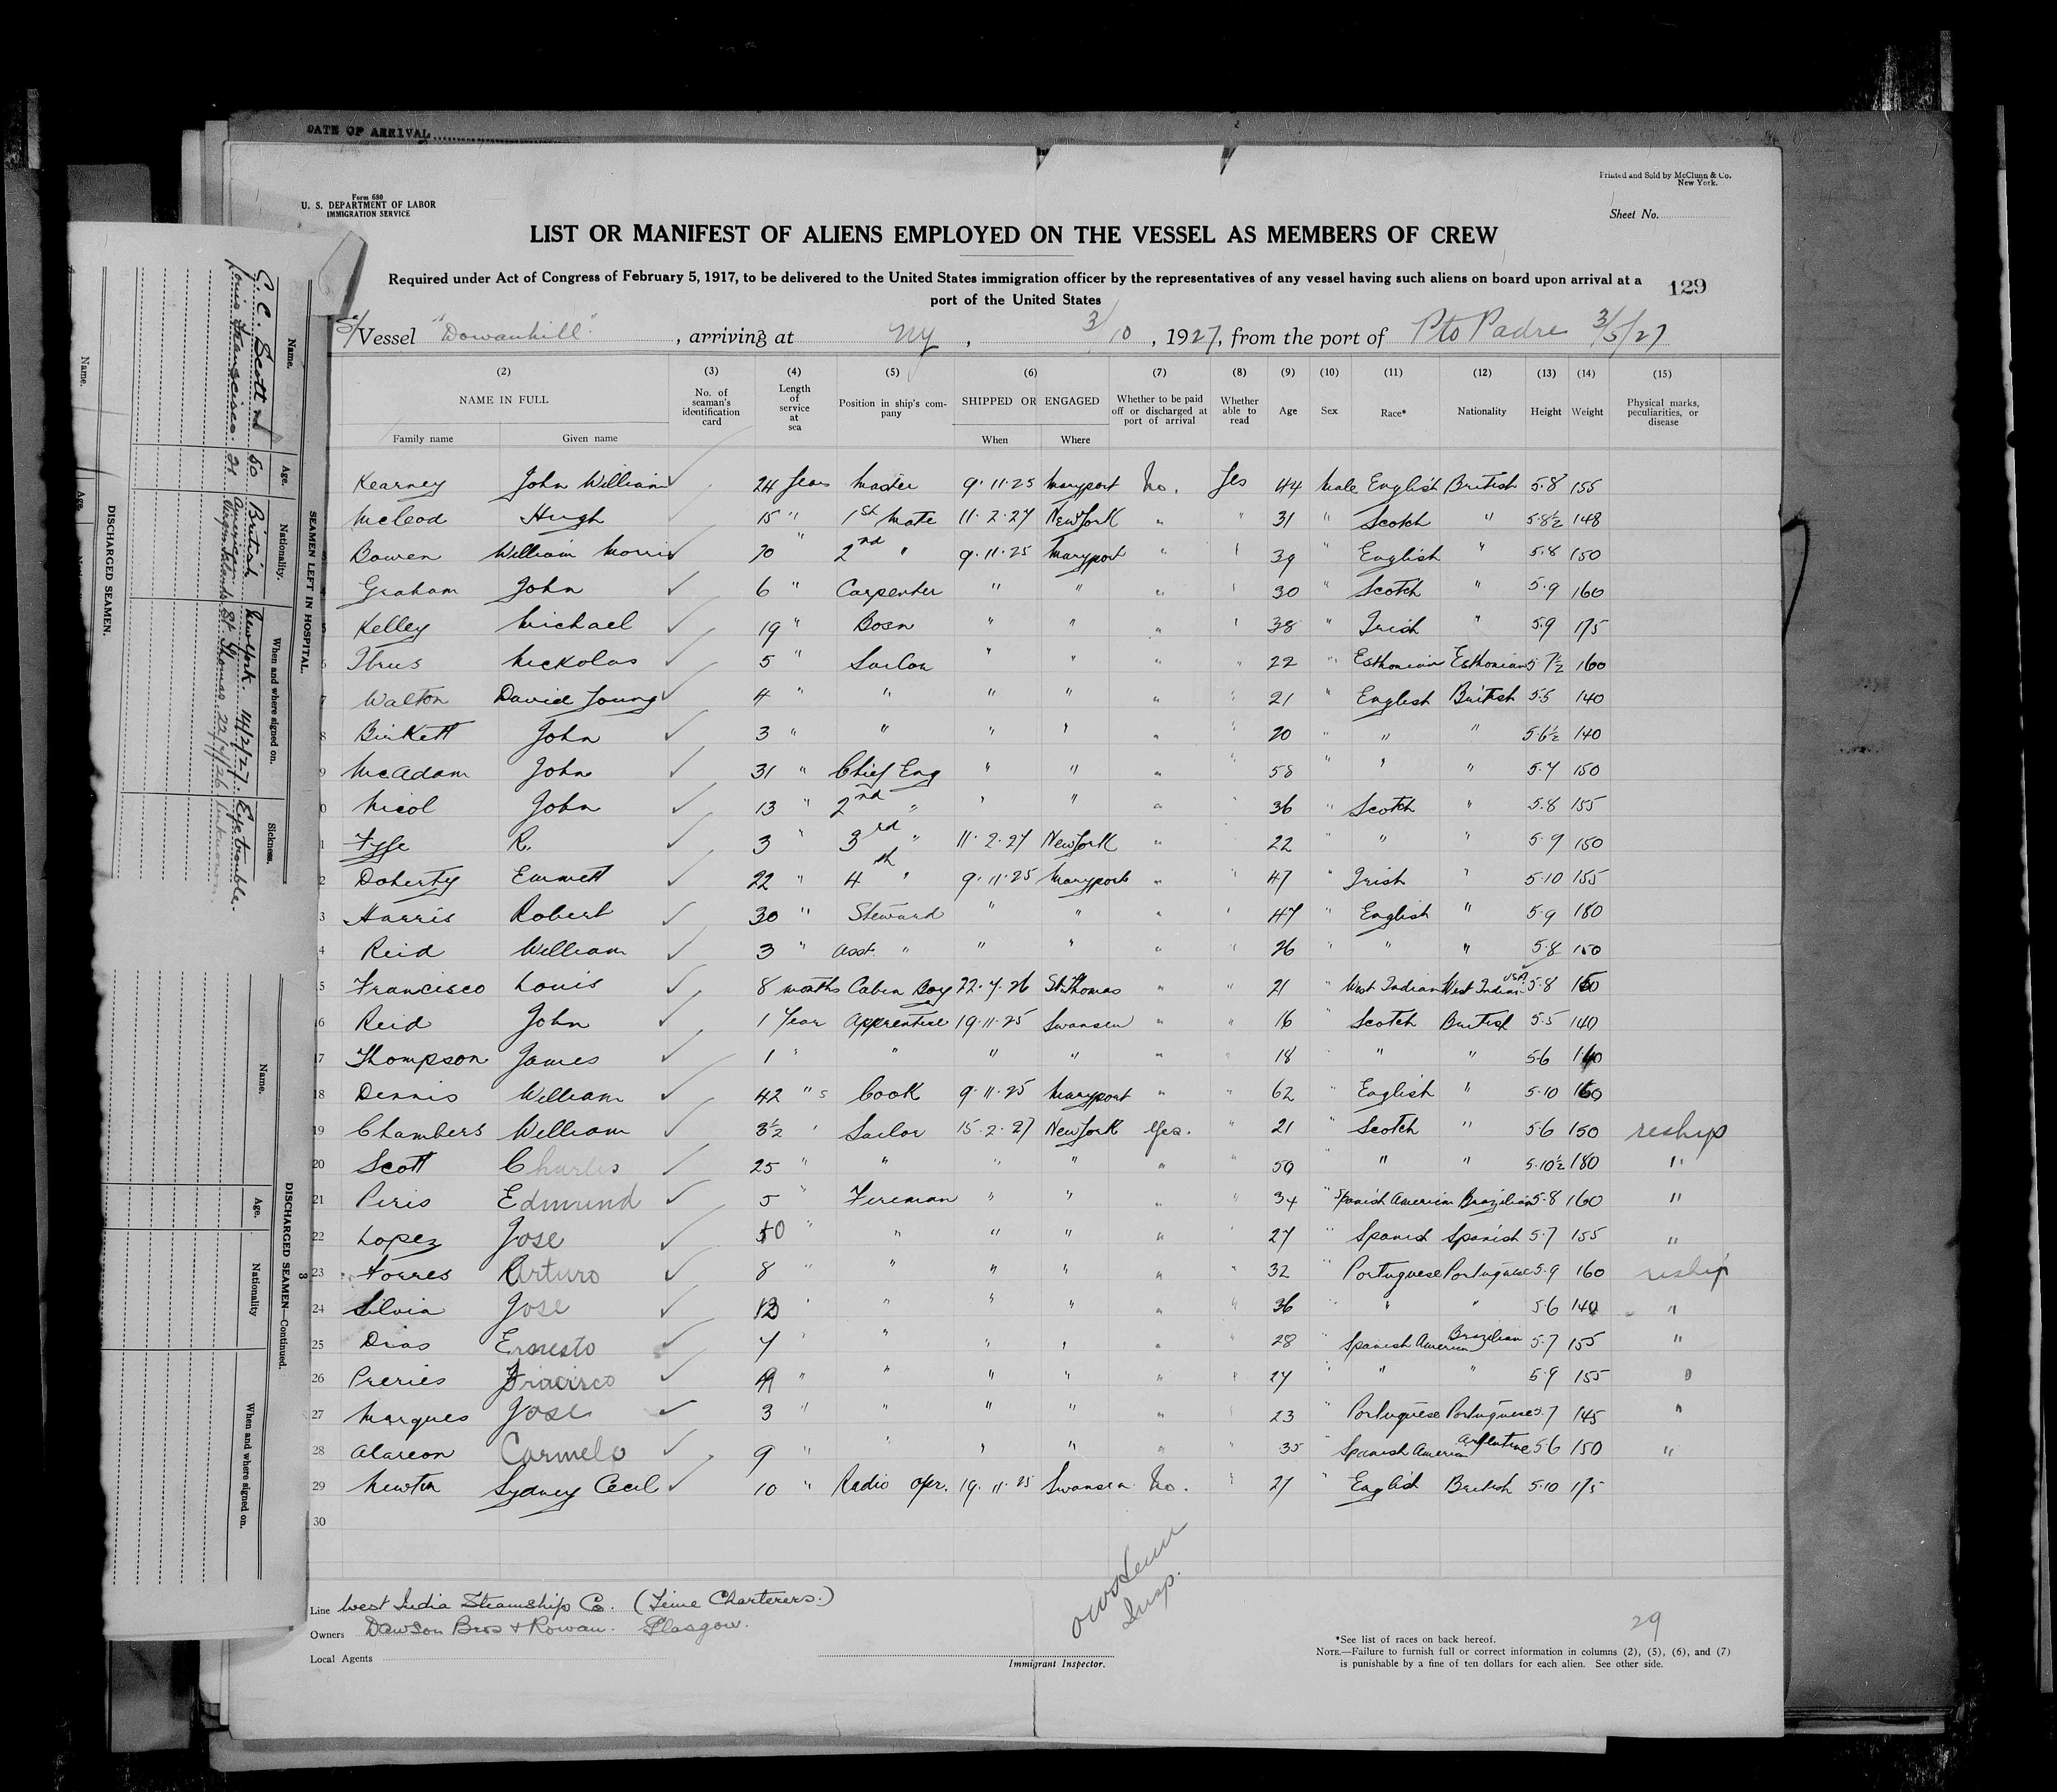 DATE OF ARRIVAL
Form 680
U. S. DEPARTMENT OF LABOR
IMMIGRATION SERVICE
Printed and Sold by McClunn & Co.
New York.
Sheet No.
LIST OR MANIFEST OF ALIENS EMPLOYED ON THE VESSEL AS MEMBERS OF CREW
Required under Act of Congress of February 5, 1917, to be delivered to the United States immigration officer by the representatives of any vessel having such aliens on board upon arrival at a
port of the United States
129
S/ Vessel "Dowanhill", arriving at NY, 3/10, 1927, from the port of Pto Padre 3/5/27
(2) (3) (4) (5) (6) (7) (8) (9) (10) (11) (12) (13) (14) (15)
NAME IN FULL No. of seaman's identification card Length of service at sea Position in ship's company SHIPPED OR ENGAGED Whether to be paid off or discharged at port of arrival Whether able to read Age Sex Race* Nationality Height Weight Physical marks, peculiarities, or disease
Family name Given name When Where
Kearney John William 24 Years Master 9.11.25 Maryport No. Yes 44 Male English British 5.8 155
McLeod Hugh 15 " 1st Mate 11.2.27 New York " " 31 " Scotch " 5.8½ 148
Bowen William Morris 20 " 2nd " 9.11.25 Maryport " " 39 " English " 5.8 150
Graham John 6 " Carpenter " " " " 30 " Scotch " 5.9 160
5 Kelley Michael 19 " Bosn " " " " 38 " Irish " 5.9 175
6 Nickolas 5 " Sailor " " " " 22 " Esthonian Esthonian 5.7½ 160
7 Walton David Young 4 " " " " " " 21 " English British 5.5 140
8 Birkett John 3 " " " " " " 20 " " " 5.6½ 140
9 McAdam John 31 " Chief Eng " " " " 58 " " " 5.7 150
0 Nicol John 13 " 2nd " " " " " 36 " Scotch " 5.8 155
1 Fyfe R. 3 " 3rd " 11.2.27 New York " " 22 " " " 5.9 150
2 Doherty Emmett 22 " 4th " 9.11.25 Maryport " " 47 " Irish " 5.10 155
3 Harris Robert 30 " Steward " " " " 47 " English " 5.9 180
4 Reid William 3 " Asst. " " " " " 26 " " " 5.8 150
5 Francisco Louis 8 months Cabin Boy 22.7.26 St Thomas " " 21 " West Indian West Indian USA 5.8 150
6 Reid John 1 Year Apprentice 19.11.25 Swansea " " 16 " Scotch British 5.5 140
17 Thompson James 1 " " " " " " 18 " " " 5.6 140
18 Dennis William 42 "s Cook 9.11.25 Maryport " " 62 " English " 5.10 160
19 Chambers William 3½ " Sailor 15.2.27 New York Yes. " 21 " Scotch " 5.6 150 reship
20 Scott Charles 25 " " " " " " 50 " " " 5.10½ 180 "
21 Peris Edmund 5 " Fireman " " " " 34 " Spanish American Brazilian 5.8 160 "
22 Lopez Jose 10 " " " " " 27 " Spanish Spanish 5.7 155 "
23 Torres Arturo 8 " " " " " 32 " Portuguese Portuguese 5.9 160 reship
24 Silvia Jose 12 " " " " " " 36 " " " 5.6 140 "
25 Dias Ernesto 7 " " " " " " 28 " Spanish American Brazilian 5.7 155 "
26 Preries 4 " " " " " " 27 " " " 5.9 155 "
27 Marques Jose 3 " " " " " " 23 Portuguese Portuguese 5.7 145 "
28 Alarcon Carmelo 9 " " " " " " 35 Spanish American Argentine 5.6 150 "
29 Newton Sydney Cecil 10 " Radio Opr. 19.11.25 Swansea No. " 27 " English British 5.10 175
30
Line West India Steamship Co. (Time Charterers.)
Owners Dawson Bros & Rowan. Glasgow.
Local Agents
Insp.
Immigrant Inspector.
29
*See list of races on back hereof.
NOTE.—Failure to furnish full or correct information in columns (2), (5), (6), and (7)
is punishable by a fine of ten dollars for each alien. See other side.
SEAMEN LEFT IN HOSPITAL.
Name. Age. Nationality. When and where signed on. Sickness.
C. Scott 50 British New York. 14/2/27. Eye trouble.
Louis Francisco. 21 American Virgin Islands St. Thomas 22/7/26 Unknown
DISCHARGED SEAMEN.
Name. Age.
3
DISCHARGED SEAMEN—Continued.
Name. Age. Nationality When and where signed on.